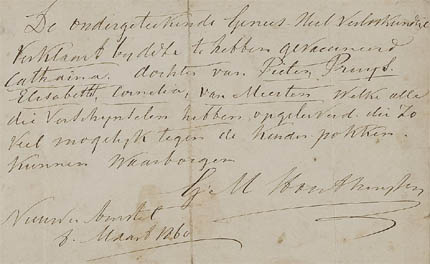 De ondergeteekende Genees Heel Verloskundige
Verklaart bij dese te hebben gevaccineerd
Catharina, dochter van Pieter Pruijs.
Elisabeth, Cornelia, van Meerten Welke alle
die Verschynselen hebben opgeleverd die Zo
Veel mogelyk tegen de kinder pokken
Kunnen Waarborgen
G. M
Nieuwer Amstel
8 Maart 1860